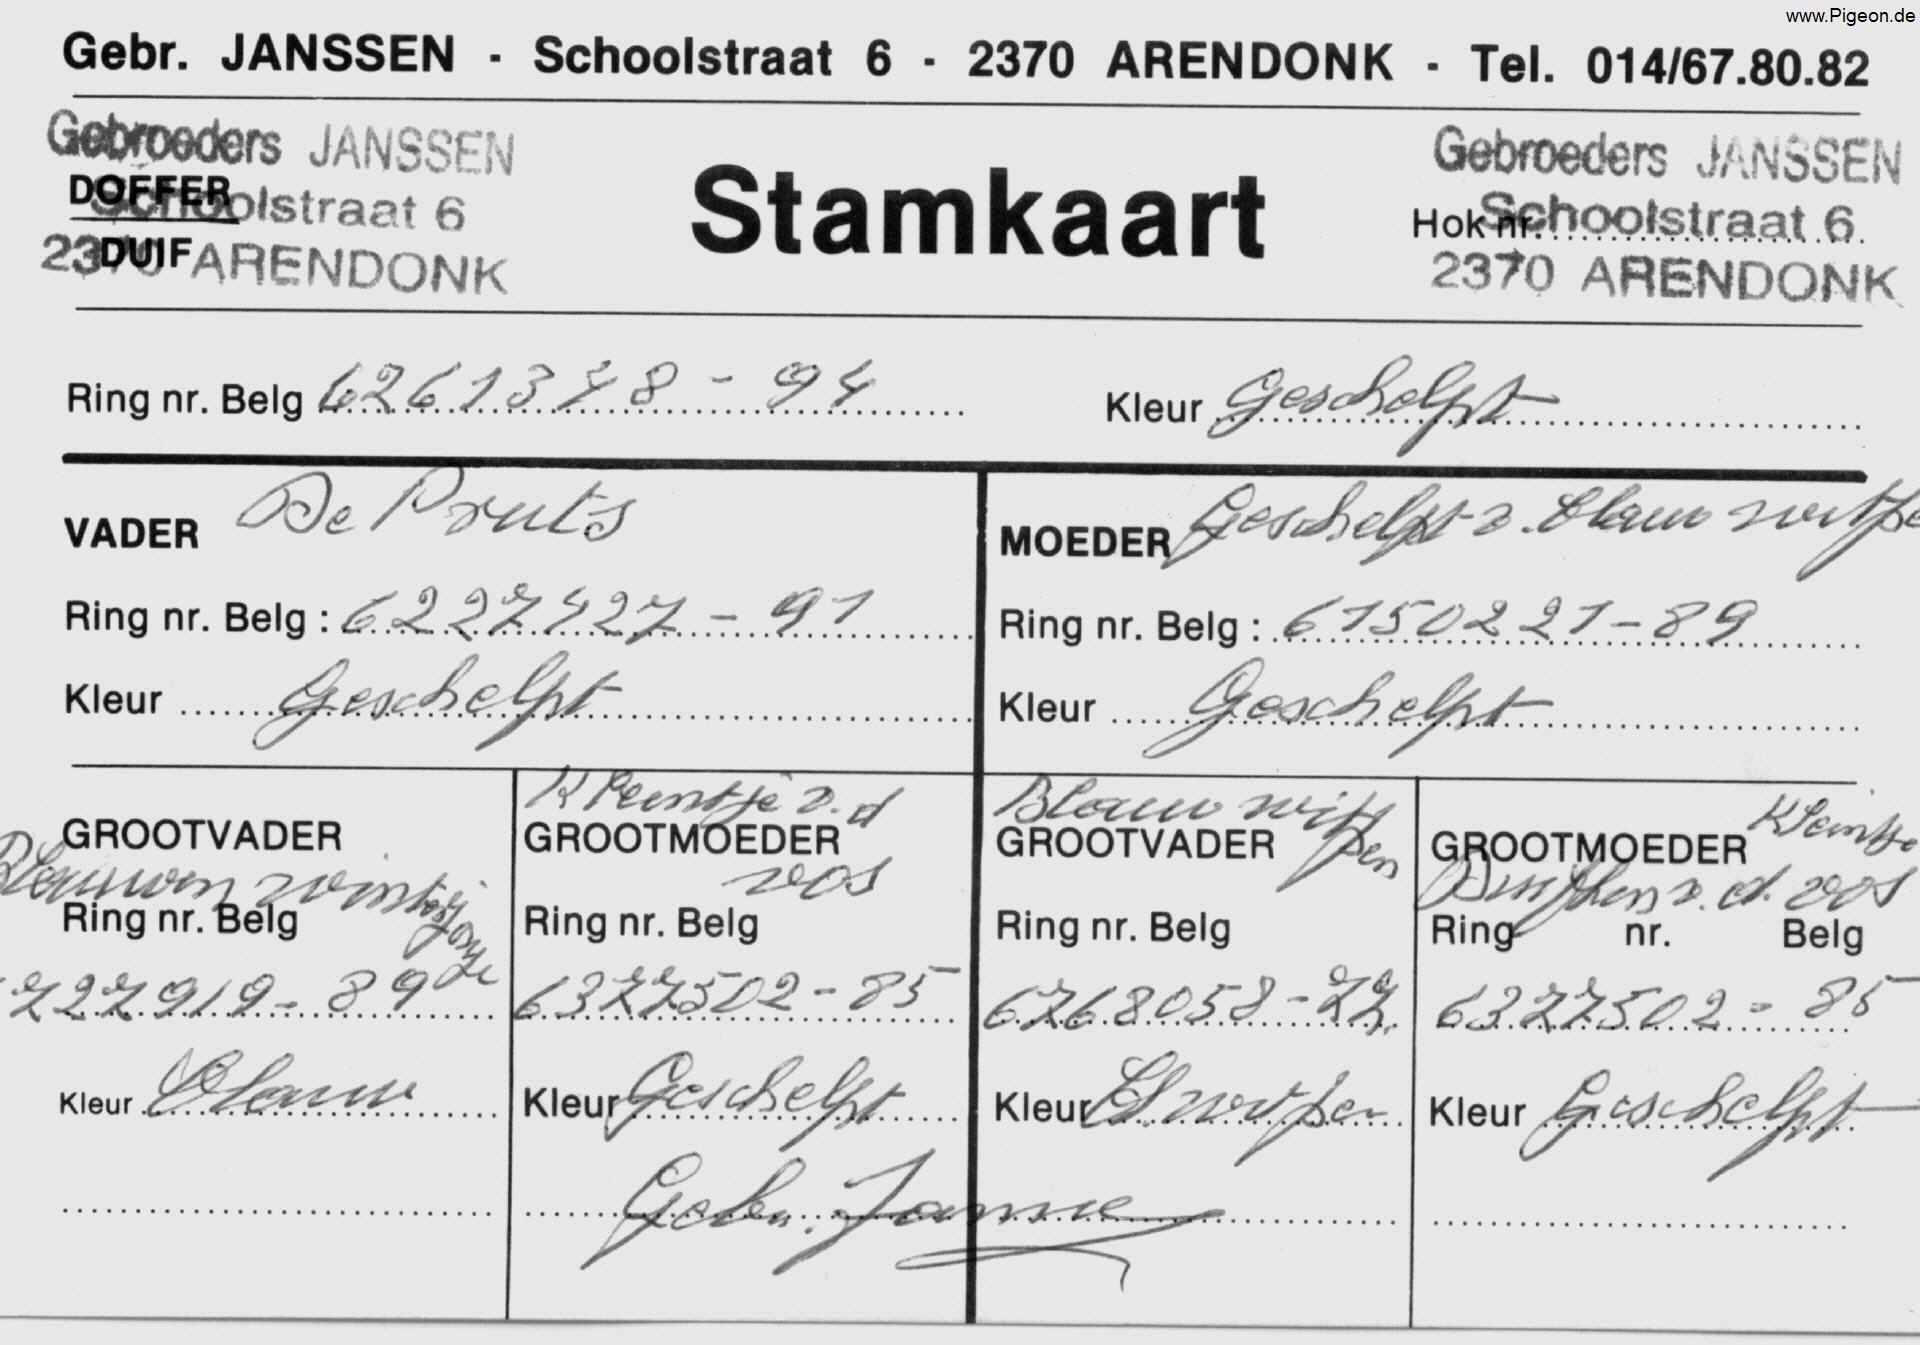 www.Pigeon.de
Gebr. JANSSEN - Schoolstraat 6 - 2370 ARENDONK - Tel. 014/67.80.82
Gebroeders JANSSEN
Schoolstraat 6
2370 ARENDONK
DOFFER
DUIF
Stamkaart
Gebroeders JANSSEN
Schoolstraat 6
2370 ARENDONK
Hok nr.
Ring nr. Belg 6261378-94 Kleur Geschelpt
VADER De Pruts
Ring nr. Belg : 6227427-91
Kleur Geschelpt
MOEDER Geschelpt v. Blauw witpen
Ring nr. Belg : 6150221-89
Kleur Geschelpt
GROOTVADER
Blauwen
Ring nr. Belg
227919-89
Kleur Blauw
Kleintje v.d
GROOTMOEDER
vos
Ring nr. Belg
6377502-85
Kleur Geschelpt
Blauw witpen
GROOTVADER
Ring nr. Belg
6768058-77
Kleur Bl. witpen
Kleintje
GROOTMOEDER
v.d. vos
Ring nr. Belg
6377502-85
Kleur Geschelpt
Gebr. Janssen